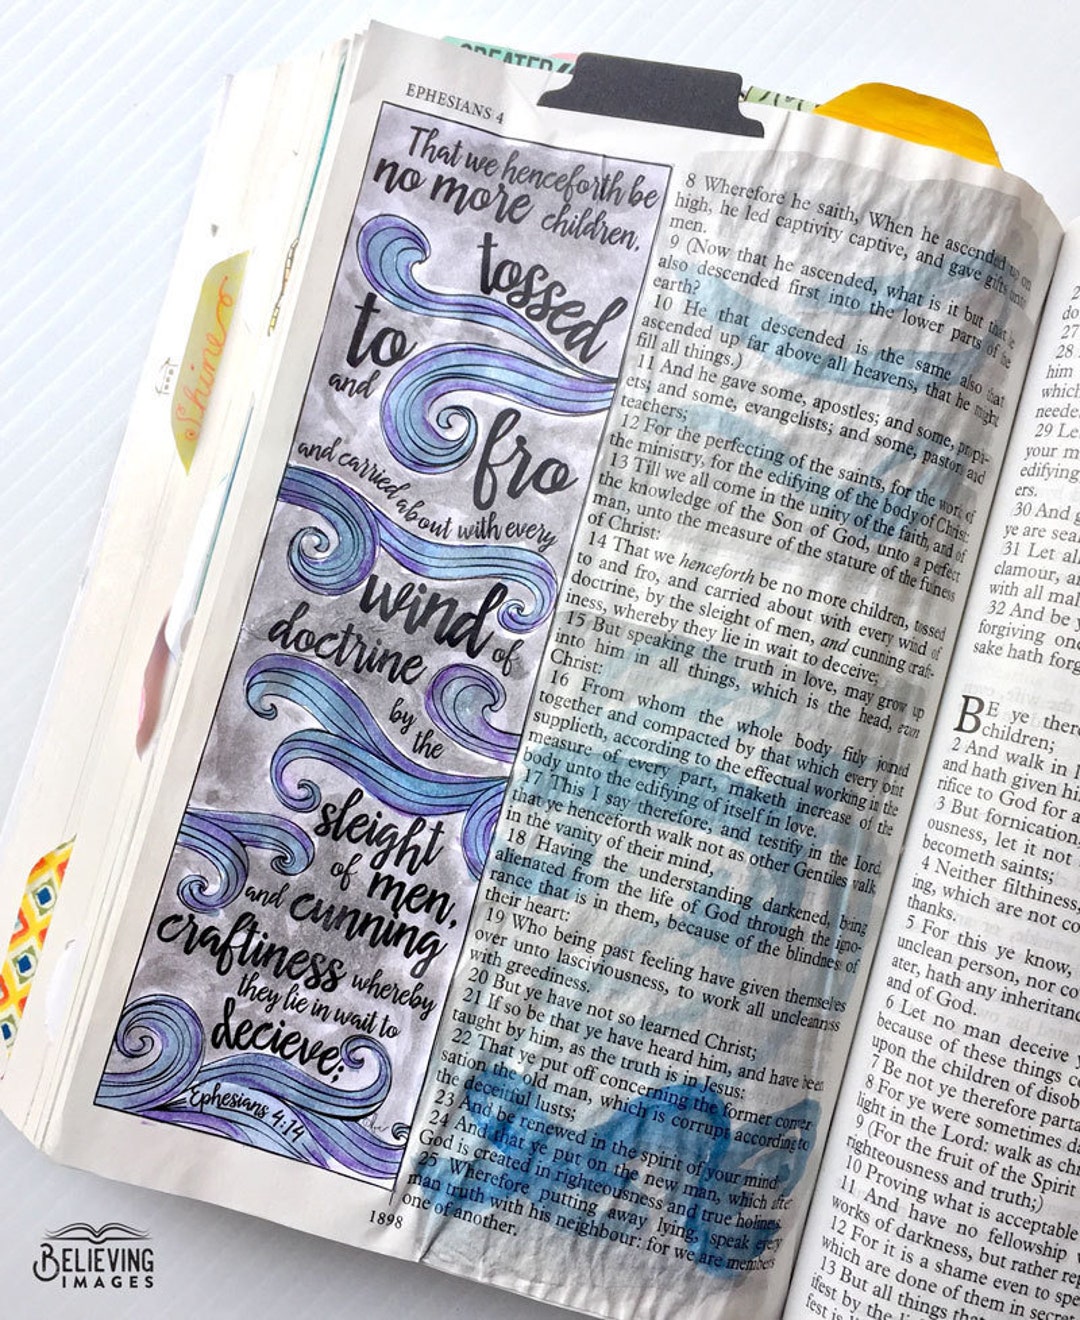 GREATER
EPHESIANS 4
That we henceforth be
no more children,
tossed
to
and
fro
and carried about with every
wind of
doctrine
by
the
sleight
of men,
and cunning
craftiness whereby
they lie in wait to
decieve;
Ephesians 4:14
1898
Shine
8 Wherefore he saith, When he ascended up on
high, he led captivity captive, and gave gifts unto
men.
9 (Now that he ascended, what is it but that he
also descended first into the lower parts of the
earth?
10 He that descended is the same also that
ascended up far above all heavens, that he might
fill all things.)
11 And he gave some, apostles; and some, proph-
ets; and some, evangelists; and some, pastors and
teachers;
12 For the perfecting of the saints, for the work of
the ministry, for the edifying of the body of Christ:
13 Till we all come in the unity of the faith, and of
the knowledge of the Son of God, unto a perfect
man, unto the measure of the stature of the fulness
of Christ:
14 That we henceforth be no more children, tossed
to and fro, and carried about with every wind of
doctrine, by the sleight of men, and cunning craft-
iness, whereby they lie in wait to deceive;
15 But speaking the truth in love, may grow up
into him in all things, which is the head, even
Christ:
16 From whom the whole body fitly joined
together and compacted by that which every joint
supplieth, according to the effectual working in the
measure of every part, maketh increase of the
body unto the edifying of itself in love.
17 This I say therefore, and testify in the Lord,
that ye henceforth walk not as other Gentiles walk
in the vanity of their mind,
18 Having the understanding darkened, being
alienated from the life of God through the igno-
rance that is in them, because of the blindness of
their heart:
19 Who being past feeling have given themselves
over unto lasciviousness, to work all uncleanness
with greediness.
20 But ye have not so learned Christ;
21 If so be that ye have heard him, and have been
taught by him, as the truth is in Jesus:
22 That ye put off concerning the former conver-
sation the old man, which is corrupt according to
the deceitful lusts;
23 And be renewed in the spirit of your mind;
24 And that ye put on the new man, which after
God is created in righteousness and true holiness.
25 Wherefore putting away lying, speak every
man truth with his neighbour: for we are members
one of another.
2
do
27
28
him
which
neede
29 Le
your m
edifying
ers.
30 And g
ye are seal
31 Let all
clamour, an
with all mal
32 And be y
forgiving one
sake hath forg
BE ye there
children;
2 And walk in l
and hath given hi
rifice to God for a
3 But fornication,
ousness, let it not
becometh saints;
4 Neither filthiness,
ing, which are not co
thanks.
5 For this ye know,
unclean person, nor co
ater, hath any inheritanc
and of God.
6 Let no man deceive y
because of these things co
upon the children of disob
7 Be not ye therefore parta
8 For ye were sometimes da
light in the Lord: walk as chi
9 (For the fruit of the Spirit
righteousness and truth;)
10 Proving what is acceptable
11 And have no fellowship w
works of darkness, but rather rep
12 For it is a shame even to spe
which are done of them in secret
13 But all things tha
ifest by the li
fest is
BELIEVING
IMAGES